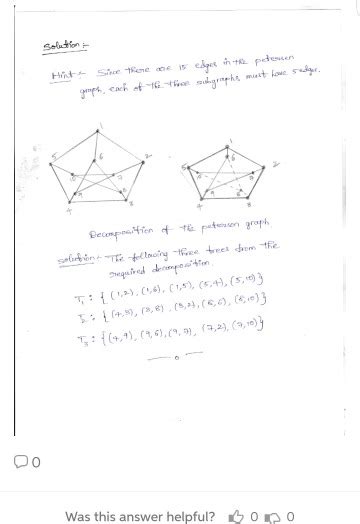 Solution :-
Hint :- Since there are 15 edges in the petersen
graph, each of the three subgraphs must have 5 edges.
1
5
6
2
10
7
9
8
4
3
1
6
5
2
10
4
3
Decomposition of the petersen graph
solution: The following three trees from the
required decomposition.
T₁ : { (1,2), (1,6), (1,5), (5,4), (5,10)}
T₂ : { (4,3), (3,8), (3,2), (8,6), (8,10)}
T₃ : {(4,9), (9,6), (9,7), (7,2), (7,10)}
0
Was this answer helpful? 0 0